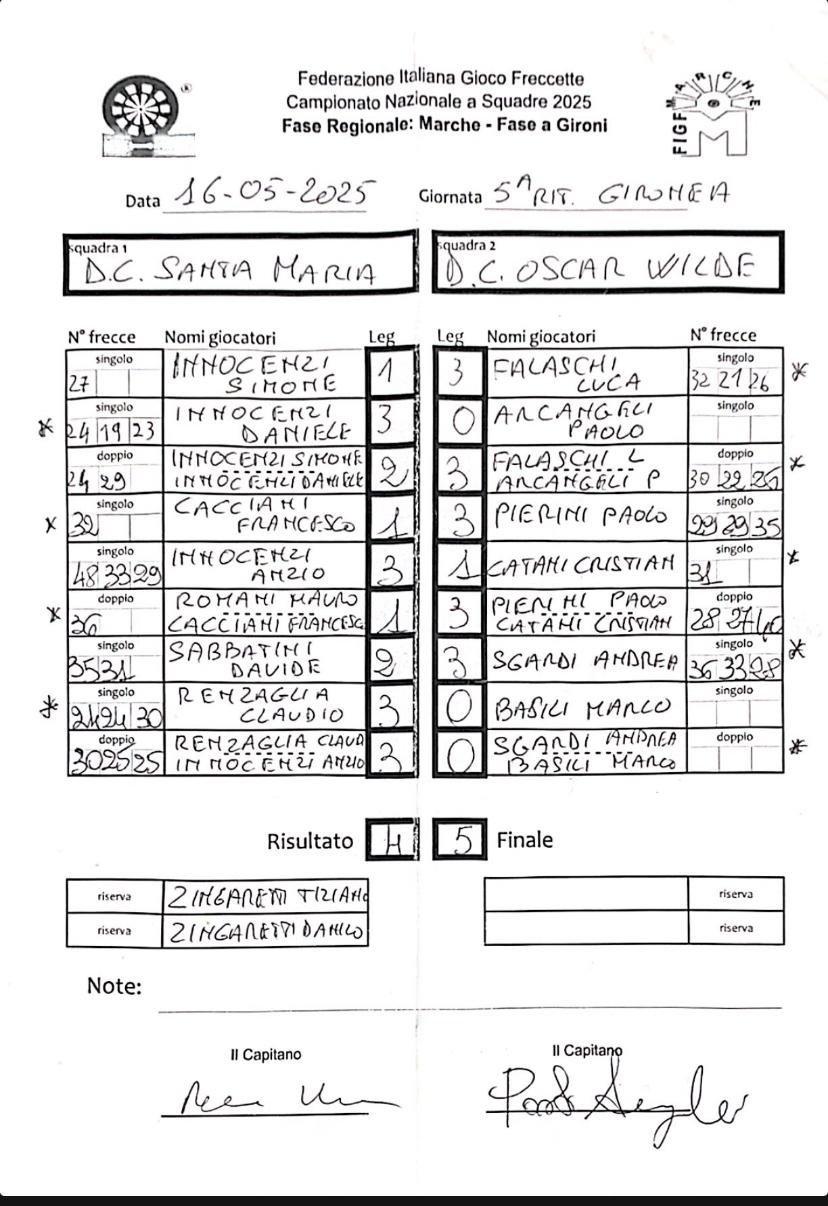 Federazione Italiana Gioco Freccette
Campionato Nazionale a Squadre 2025
Fase Regionale: Marche - Fase a Gironi
FIGF MARCHE
Data 16-05-2025 Giornata 5ª RIT. GIRONE A
squadra 1 squadra 2
D.C. SANTA MARIA D.C. OSCAR WILDE
N° frecce Nomi giocatori Leg Leg Nomi giocatori N° frecce
singolo 27 INNOCENZI SIMONE 1 3 FALASCHI LUCA singolo 32 21 26 *
* singolo 24 19 23 INNOCENZI DANIELE 3 0 ARCANGELI PAOLO singolo
doppio 24 29 INNOCENZI SIMONE INNOCENZI DANIELE 2 3 FALASCHI L ARCANGELI P doppio 30 22 26 *
* singolo 32 CACCIANI FRANCESCO 1 3 PIERINI PAOLO singolo 29 29 35
singolo 48 33 29 INNOCENZI ANZIO 3 1 CATANI CRISTIAN singolo 31 *
* doppio 36 ROMANI MAURO CACCIANI FRANCESC 1 3 PIERINI PAOLO CATANI CRISTIAN doppio 28 27 40
singolo 35 31 SABBATINI DAVIDE 2 3 SGARDI ANDREA singolo 36 33 28 *
* singolo 24 24 30 RENZAGLIA CLAUDIO 3 0 BASILI MARCO singolo
doppio 30 25 25 RENZAGLIA CLAUD INNOCENZI ANZIO 3 0 SGARDI ANDREA BASILI MARCO doppio *
Risultato 4 5 Finale
riserva ZINGARETTI TIZIANO riserva
riserva ZINGARETTI DANILO riserva
Note:
Il Capitano Il Capitano